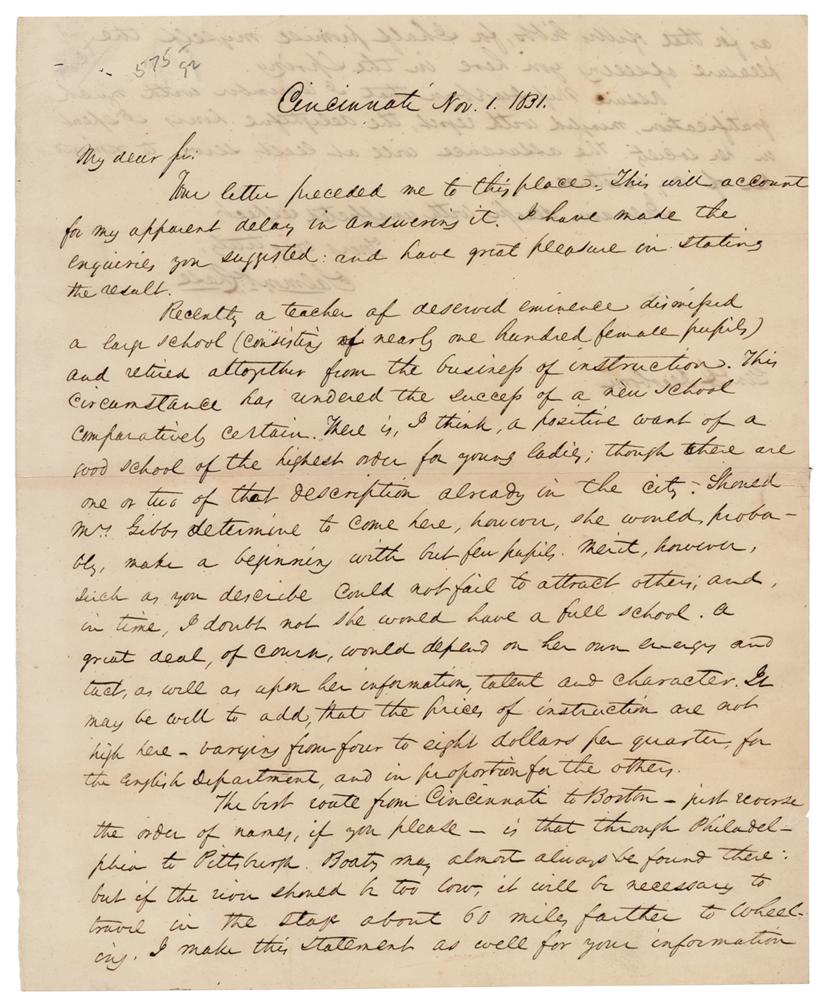 575 92
Cincinnati Nov. 1. 1831.
My dear Sir.
Your letter preceded me to this place. This will account
for my apparent delay in answering it. I have made the
enquiries you suggested: and have great pleasure in stating
the result.
Recently a teacher of deserved eminence dismissed
a large school (consisting of nearly one hundred female pupils)
and retired altogether from the business of instruction. This
circumstance has rendered the success of a new school
comparatively certain. There is, I think, a positive want of a
good school of the highest order for young ladies; though there are
one or two of that description already in the city. Should
Mrs. Gibbs determine to come here, however, she would, proba-
bly, make a beginning with but few pupils. Merit, however,
such as you describe could not fail to attract others; and,
in time, I doubt not she would have a full school. A
great deal, of course, would depend on her own energy and
tact, as well as upon her information, talent and character. It
may be well to add, that the prices of instruction are not
high here – varying from four to eight dollars per quarter, for
the English Department, and in proportion for the others.
The best route from Cincinnati to Boston – just reverse
the order of names, if you please – is that through Philadel-
phia to Pittsburgh. Boats may almost always be found there:
but if the river should be too low, it will be necessary to
travel in the stage about 60 miles farther to Wheel-
ing. I make this statement as well for your information